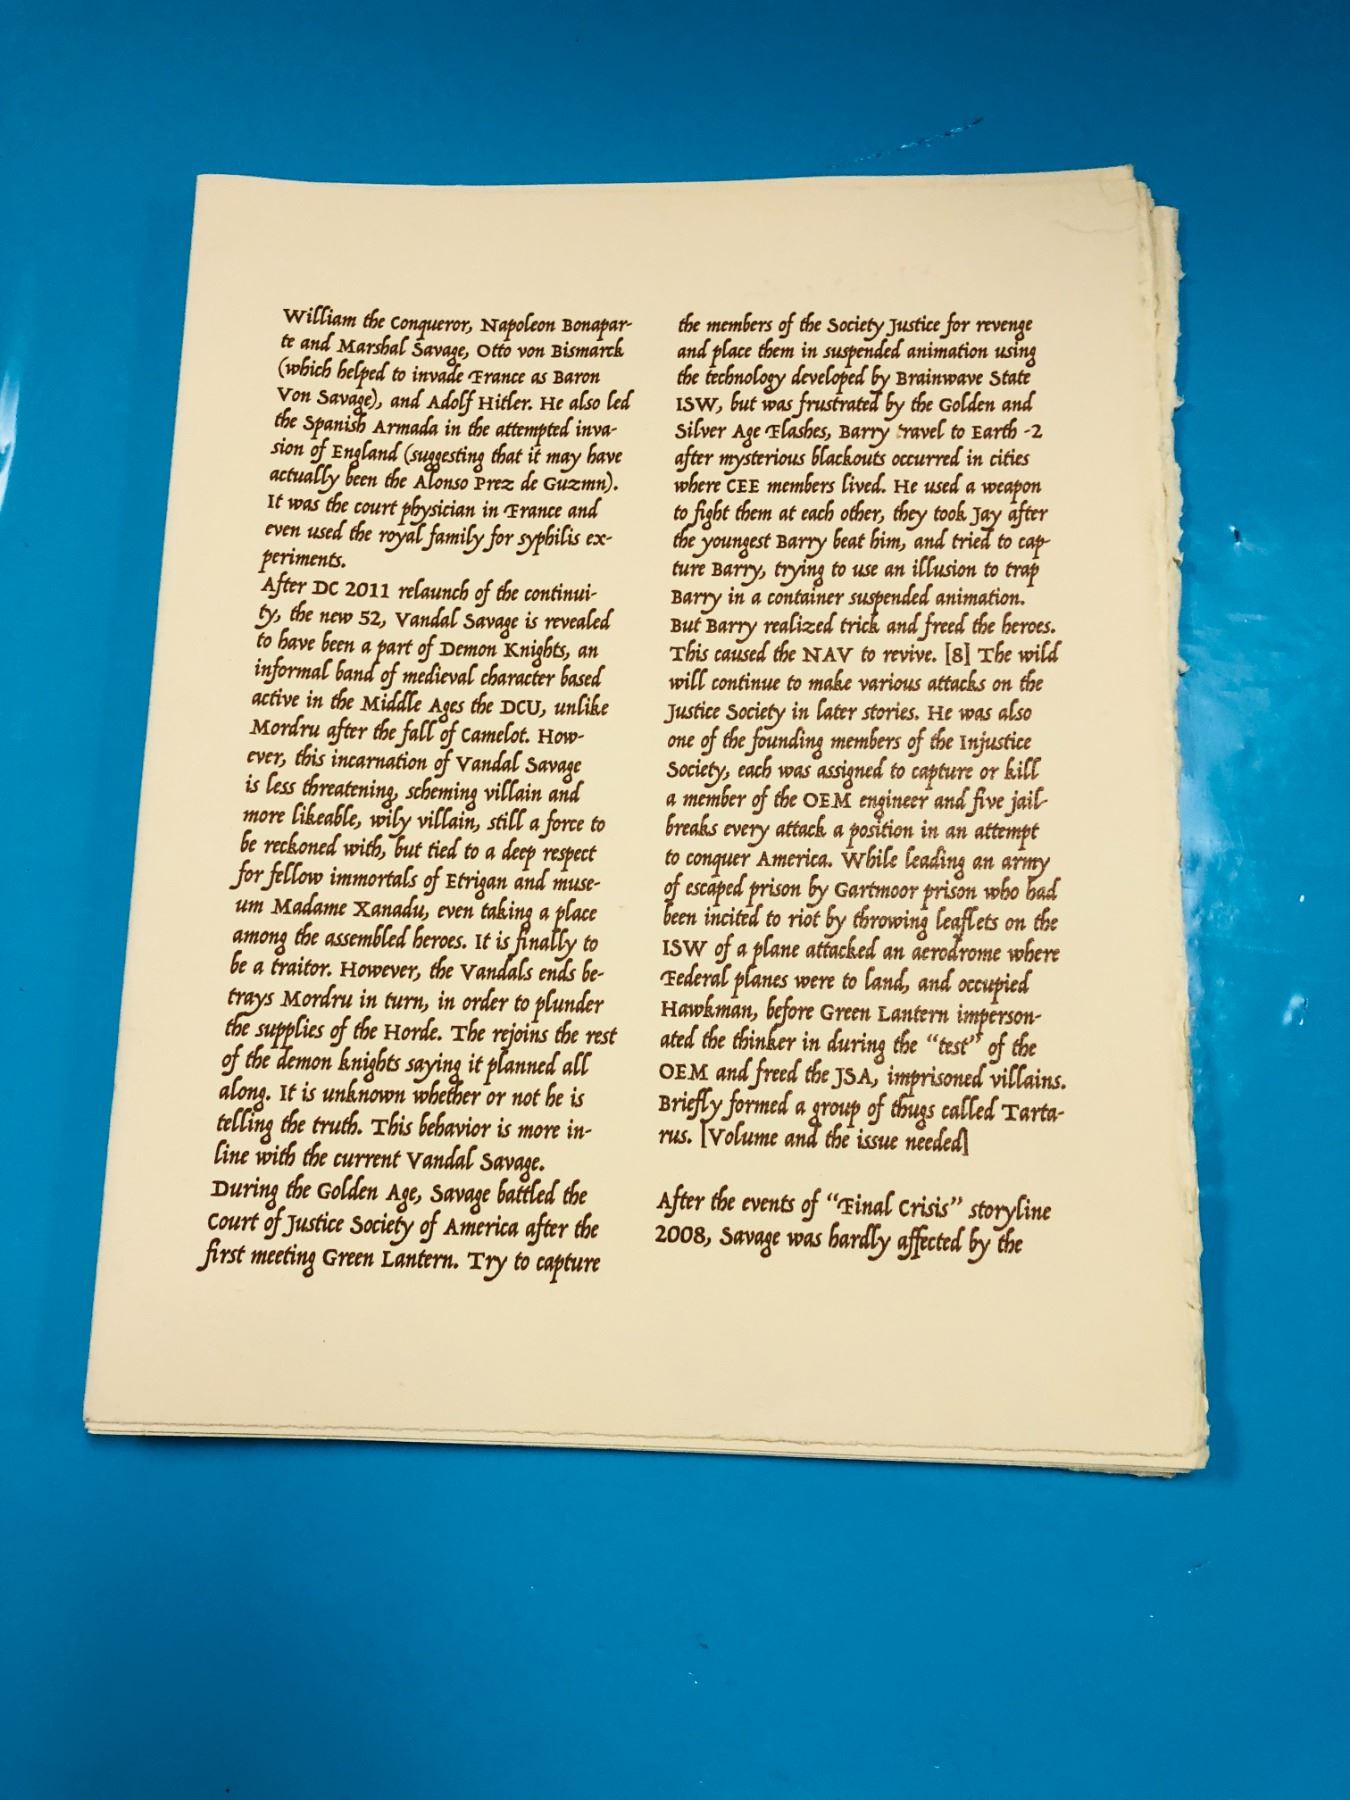 William the Conqueror, Napoleon Bonapar-
te and Marshal Savage, Otto von Bismarck
(which helped to invade France as Baron
Von Savage), and Adolf Hitler. He also led
the Spanish Armada in the attempted inva-
sion of England (suggesting that it may have
actually been the Alonso Prez de Guzmn).
It was the court physician in France and
even used the royal family for syphilis ex-
periments.
After DC 2011 relaunch of the continui-
ty, the new 52, Vandal Savage is revealed
to have been a part of Demon Knights, an
informal band of medieval character based
active in the Middle Ages the DCU, unlike
Mordru after the fall of Camelot. How-
ever, this incarnation of Vandal Savage
is less threatening, scheming villain and
more likeable, wily villain, still a force to
be reckoned with, but tied to a deep respect
for fellow immortals of Etrigan and muse-
um Madame Xanadu, even taking a place
among the assembled heroes. It is finally to
be a traitor. However, the Vandals ends be-
trays Mordru in turn, in order to plunder
the supplies of the Horde. The rejoins the rest
of the demon knights saying it planned all
along. It is unknown whether or not he is
telling the truth. This behavior is more in-
line with the current Vandal Savage.
During the Golden Age, Savage battled the
Court of Justice Society of America after the
first meeting Green Lantern. Try to capture
the members of the Society Justice for revenge
and place them in suspended animation using
the technology developed by Brainwave State
ISW, but was frustrated by the Golden and
Silver Age Flashes, Barry travel to Earth -2
after mysterious blackouts occurred in cities
where CEE members lived. He used a weapon
to fight them at each other, they took Jay after
the youngest Barry beat him, and tried to cap-
ture Barry, trying to use an illusion to trap
Barry in a container suspended animation.
But Barry realized trick and freed the heroes.
This caused the NAV to revive. [8] The wild
will continue to make various attacks on the
Justice Society in later stories. He was also
one of the founding members of the Injustice
Society, each was assigned to capture or kill
a member of the OEM engineer and five jail-
breaks every attack a position in an attempt
to conquer America. While leading an army
of escaped prison by Gartmoor prison who had
been incited to riot by throwing leaflets on the
ISW of a plane attacked an aerodrome where
Federal planes were to land, and occupied
Hawkman, before Green Lantern imperson-
ated the thinker in during the “test” of the
OEM and freed the JSA, imprisoned villains.
Briefly formed a group of thugs called Tarta-
rus. [Volume and the issue needed]
After the events of “Final Crisis” storyline
2008, Savage was hardly affected by the